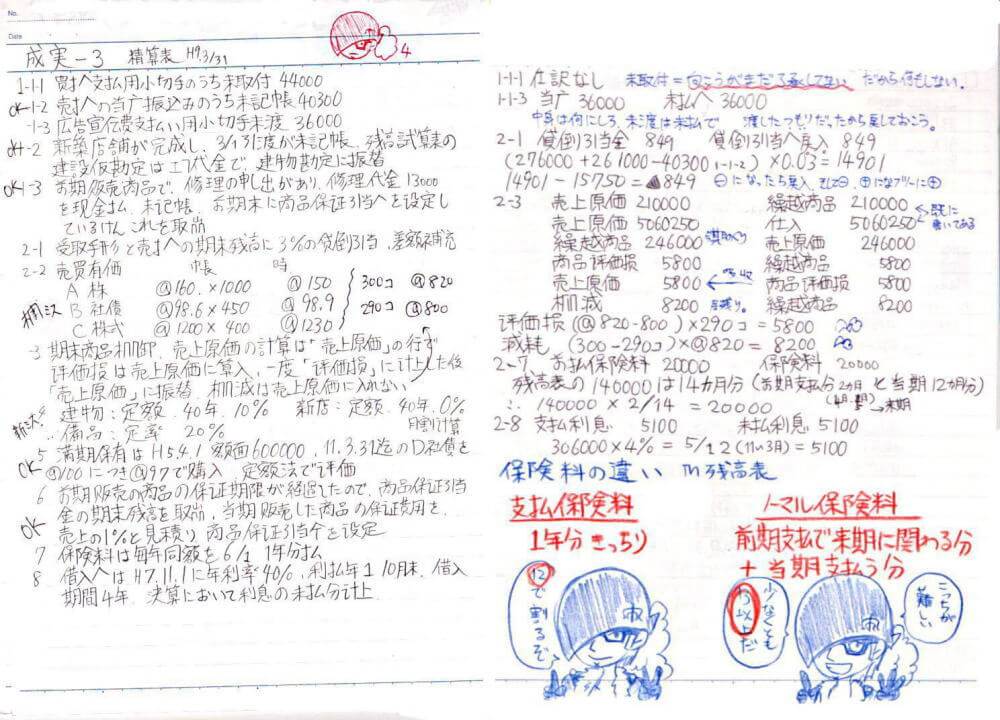 No.
Date
成実-3 精算表 H9.3/31
4
1-1-1 買掛へ支払用小切手のうち未取付 44000
OK 1-2 売掛への当广振込みのうち未記帳 40300
1-3 広告宣伝費支払い用小切手未渡 36000
OK 1-2 新築店舗が完成し、3/1引渡が未記帳、残高試算表の
建設仮勘定は工フ代金で、建物勘定に振替
OK 1-3 前期販売商品で、修理の申し出があり、修理代金 13000
を現金払、未記帳、前期末に商品保証引当へを設定し
ているけん、これを取崩
2-1 受取手形と売掛への期末残高に3%の貸倒引当、差額補充
2-2 売買有価 帳 時
A 株 @160.×1000 @150
棚ミス B 社債 @98.6×450 @98.9
C 株式 @1200×400 @1230
300コ @820
290コ @800
-3 期末商品棚卸、売上原価の計算は「売上原価」の行ず
評価損は売上原価に算入、一度「評価損」に計上した後
「売上原価」に振替、棚減は売上原価に入れない
新ミス 4 建物:定額、40年、10% 新店:定額、40年、0%
備品:定率 20% 月割り計算
5 満期保有は H5.4.1 額面600000、11.3.31迄のD社債を
OK @100につき@97で購入 定額法で評価
6 前期販売の商品の保証期限が経過したので、商品保証引当
金の期末残高を取崩、当期販売した商品の保証費用を、
OK 売上の1%と見積り 商品保証引当今を設定
7 保険料は毎年同額を6/1 1年分払
8 借入へはH7.11.1に年利率40%、利払年1 10月末、借入
期間4年、決算において利息の未払分計上
1-1-1 仕訳なし 未取付=向こうがまだ了承してない だから何もしない。
1-1-3 当广 36000 未払へ 36000
中身は何にしろ、未渡は未払で 渡したつもりだったから戻しておこう。
2-1 貸倒引当金 849 貸倒引当へ戻入 849
(276000+261000-40300 1-1-2)×0.03=14901
14901-15750=▲849 ⊖になったら戻入
2-3 売上原価 210000 繰越商品 210000 既に書いてある
売上原価 5060250 仕入 5060250
繰越商品 246000 売上原価 246000
商品評価損 5800 繰越商品 5800
売上原価 5800 商品評価損 5800
棚減 8200 繰越商品 8200
評価損(@820-800)×290コ=5800
減耗 (300-290コ)×@820=8200
2-7 前払保険料 20000 保険料 20000
残高表の140000は14カ月分(前期支払分2か月と当期12カ月分)
∴ 140000×2/14=20000
2-8 支払利息 5100 未払利息 5100
306000×4%= 5/12(11〜3月)=5100
保険料の違い in残高表
支払保険料
1年分きっちり
ノーマル保険料
前期支払で来期に関わる分
+当期支払う分
12で割るぞ
少なくとも13以上だ
こっちが難しい